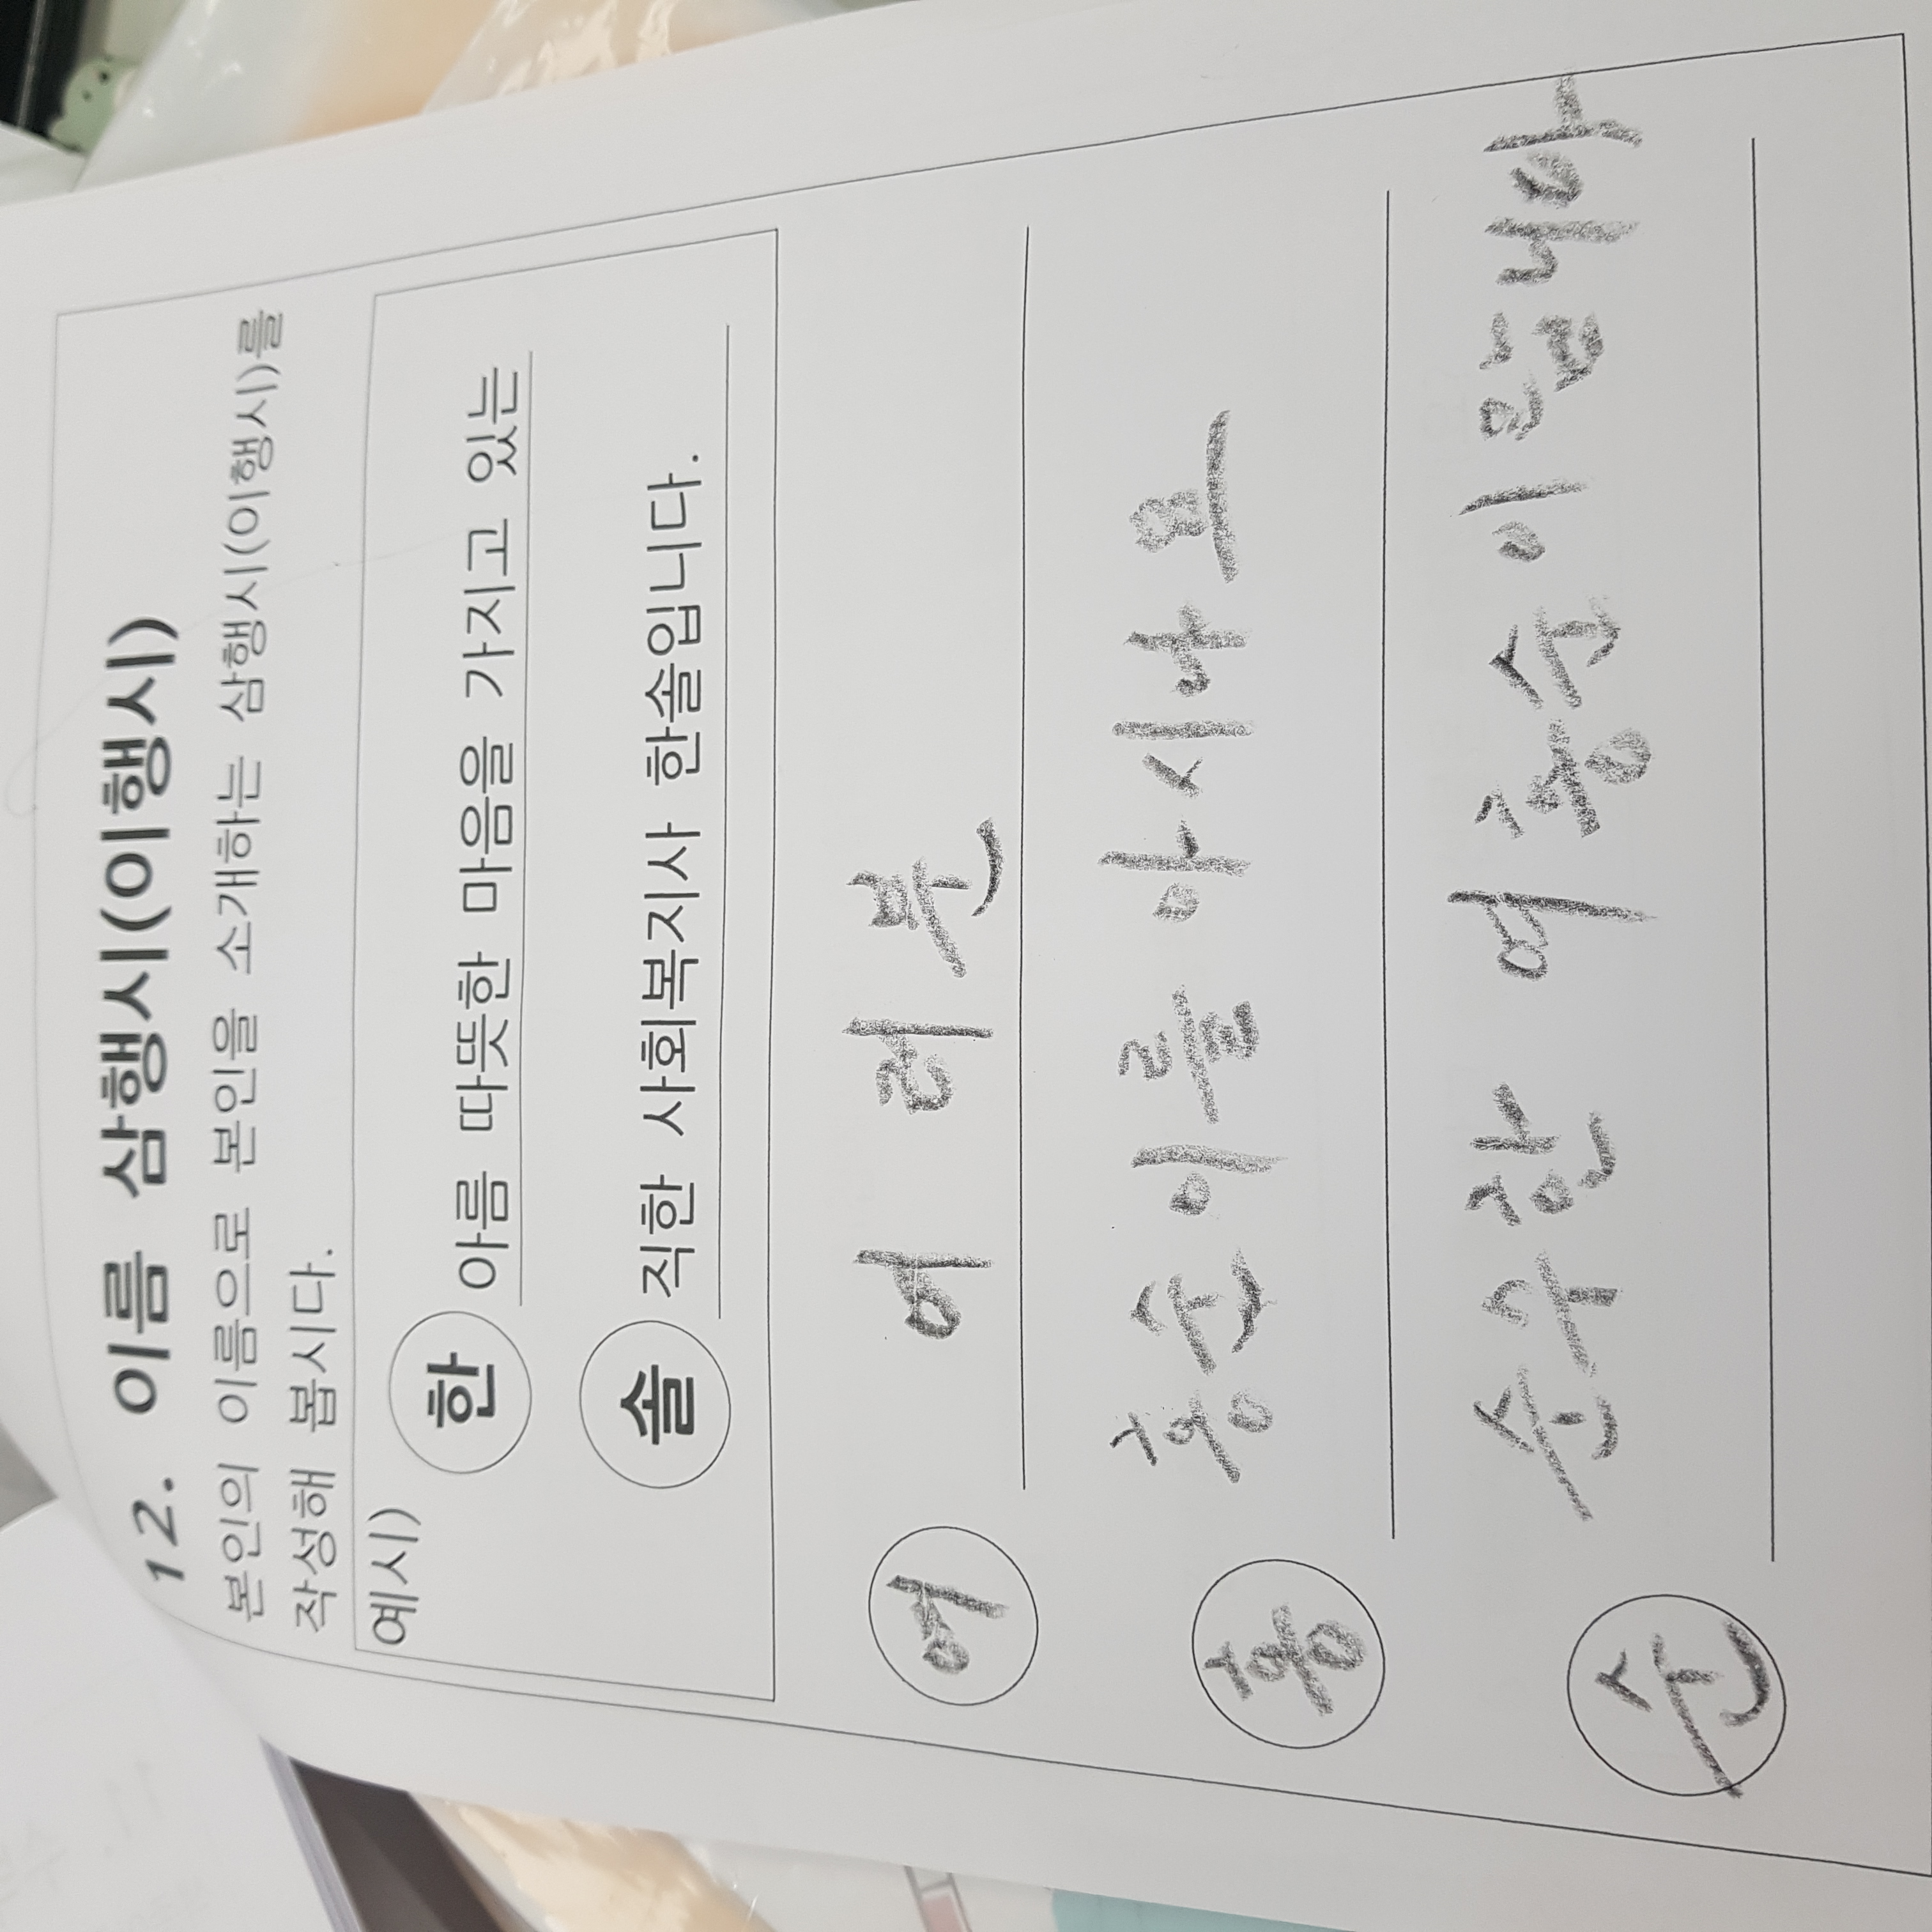 12. 이름 삼행시(이행시)
본인의 이름으로 본인을 소개하는 삼행시(이행시)를
작성해 봅시다.
예시)
한 아름 따뜻한 마음을 가지고 있는
솔 직한 사회복지사 한솔입니다.
여 여러분
흥 흥순이를 아시나요
순 순수한 여흥순이